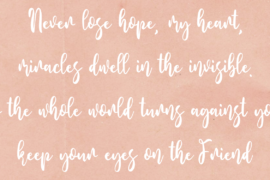 Never lose hope, my heart,
miracles dwell in the invisible.
the whole world turns against yo
keep your eyes on the Friend